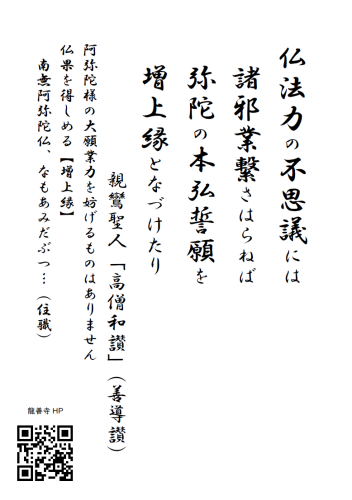 仏法力の不思議には
諸邪業繫さはらねば
弥陀の本弘誓願を
増上縁となづけたり
親鸞聖人「高僧和讃」(善導讃)
阿弥陀様の大願業力を妨げるものはありません
仏果を得しめる【増上縁】
南無阿弥陀仏、なもあみだぶつ…（住職）
龍善寺 HP